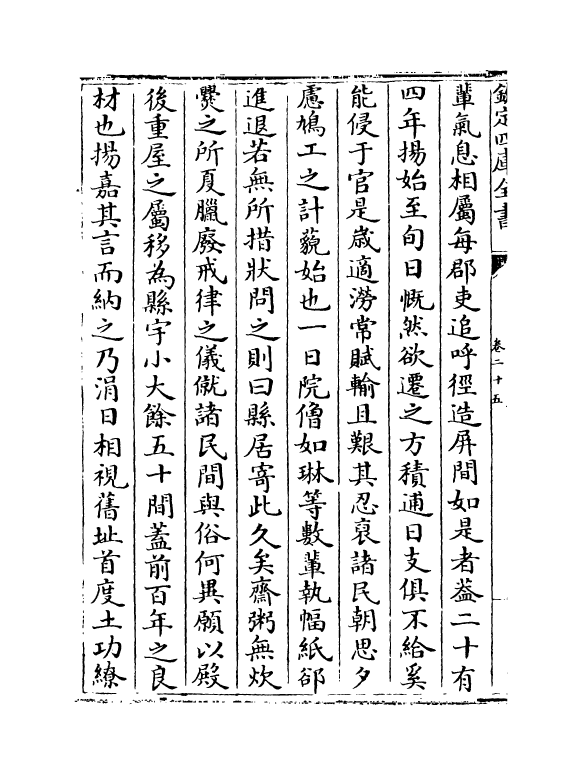 欽定四庫全書
卷二十五
輩氣息相屬每郡吏追呼徑造屏間如是者葢二十有
四年揚始至旬日慨然欲遷之方積逋日支俱不給奚
能侵于官是歳適澇常賦輸且艱其忍裒諸民朝思夕
慮鳩工之計藐始也一日院僧如琳等數輩執幅紙郤
進退若無所措狀問之則曰縣居寄此久矣齋粥無炊
爨之所夏臘廢戒律之儀僦諸民間與俗何異願以殿
後重屋之屬移為縣宇小大餘五十間蓋前百年之良
材也揚嘉其言而納之乃涓日相視舊址首度土功繚